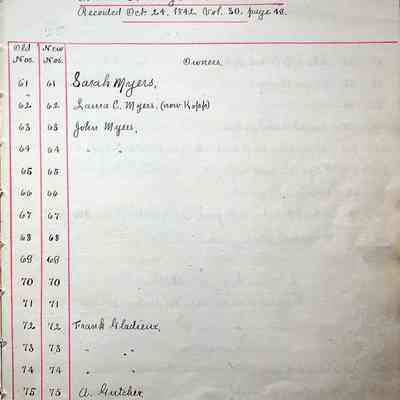 Recorded Oct 24, 1842 Vol. 30, page 48.
Old Nos. New Nos. Owners
61 61 Sarah Myers,
62 62 Laura C. Myers, (now Kopp)
63 63 John Myers,
64 64 " "
65 65
66 66
67 67
68 68
69 69
70 70
71 71
72 72 Frank Gladieux,
73 73 " "
74 74 " "
75 75 A. Gutcher,